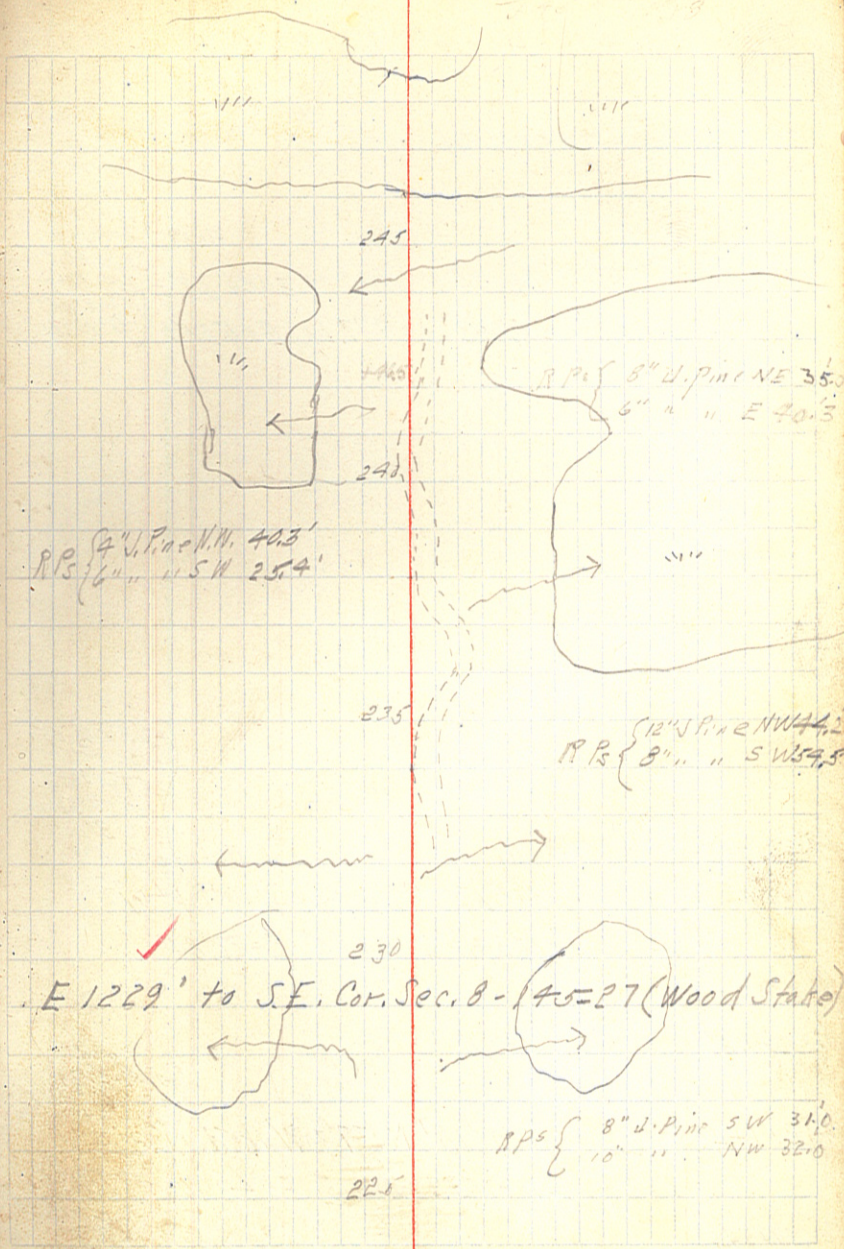 245
RPs { 8" J. Pine NE 35.0'
6" " " E 40.3
240
RPs { 4" J. Pine N.W. 40.3'
6" " " S W 25.4'
235
RPs { 12" J Pine NW 44.2
8" " " S W 54.5
230
E 1229' to S.E. Cor. Sec. 8 - 145=27 (Wood Stake)
RPs { 8" J. Pine SW 31.0'
10" " NW 32.0
225